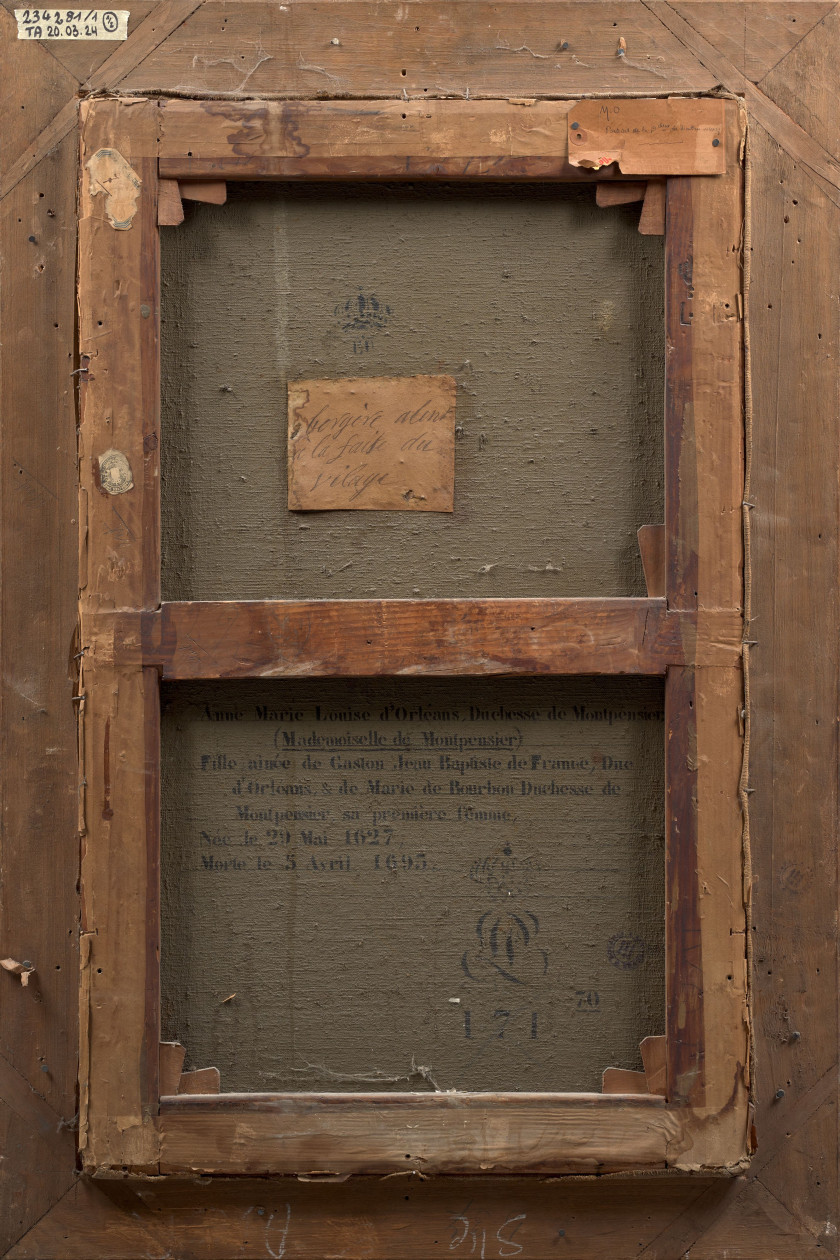 234281/1 1/2
TA 20.03.24
M.O
bergère
a la faite du
vilage
Anne Marie Louise d'Orléans, Duchesse de Montpensier
(Mademoiselle de Montpensier)
Fille ainée de Gaston Jean Baptiste de France, Duc
d'Orléans, & de Marie de Bourbon Duchesse de
Montpensier sa première femme,
Née le 29 Mai 1627
Morte le 5 Avril 1693
70
171